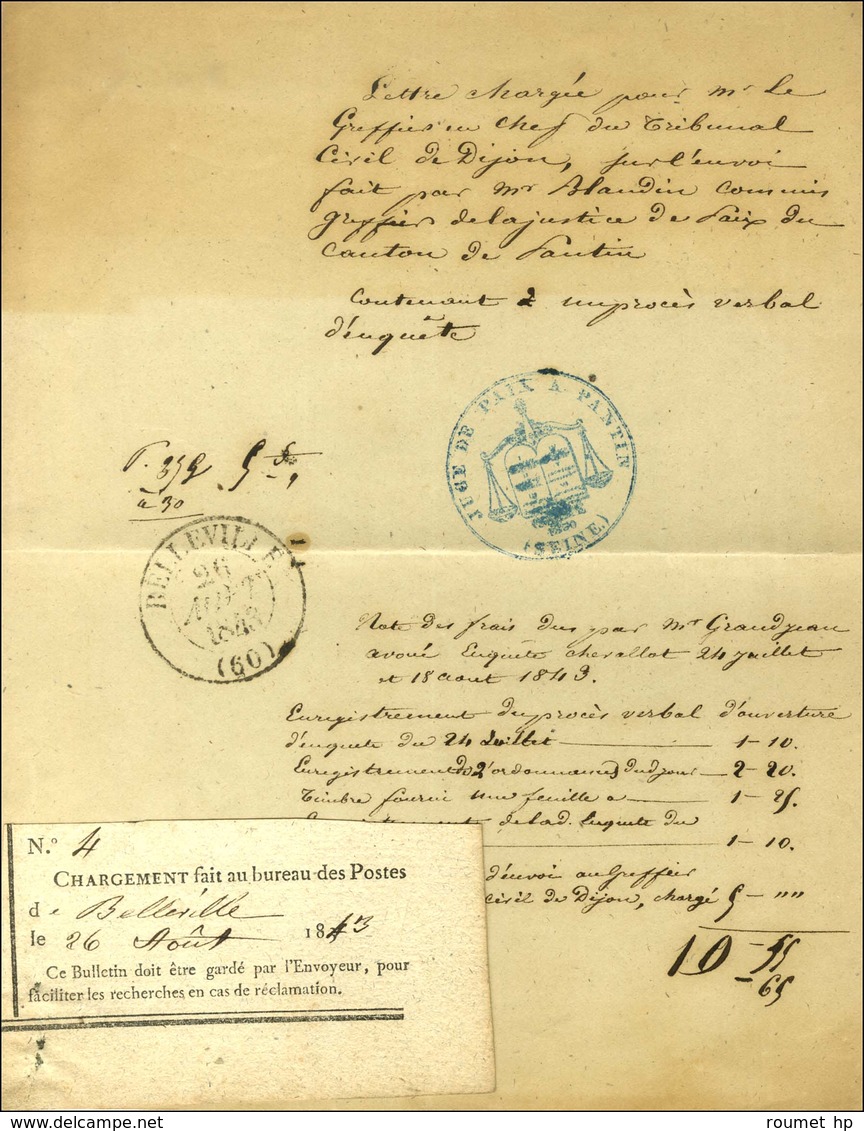 Lettre chargée pour mr Le
Greffier en chef du Tribunal
Civil de Dijon, sur l'envoi
fait par mr Blandin commis
greffier de la justice de Paix du
canton de Pantin
Contenant un procès verbal
d'enquête
JUGE DE PAIX A PANTIN
(SEINE)
à 30
BELLEVILLE
26
AOUT
1843
(60)
Note des frais dus par Mr Grandjean
avoué Enquête chevallot 24 juillet
et 18 aout 1843.
Enregistrement du procès verbal d'ouverture
d'enquete du 24 Juillet 1-10.
Enregistrement de 2 ordonnances dud jour 2-20.
Timbre fourni une feuille a 1-25.
de lad. Enquete du
1-10.
d'envoi au Greffier
civil de Dijon, chargé 5-""
10-55
-65
N.° 4
CHARGEMENT fait au bureau des Postes
de Belleville
le 26 Août 1843
Ce Bulletin doit être gardé par l'Envoyeur, pour
faciliter les recherches en cas de réclamation.
roumet hp